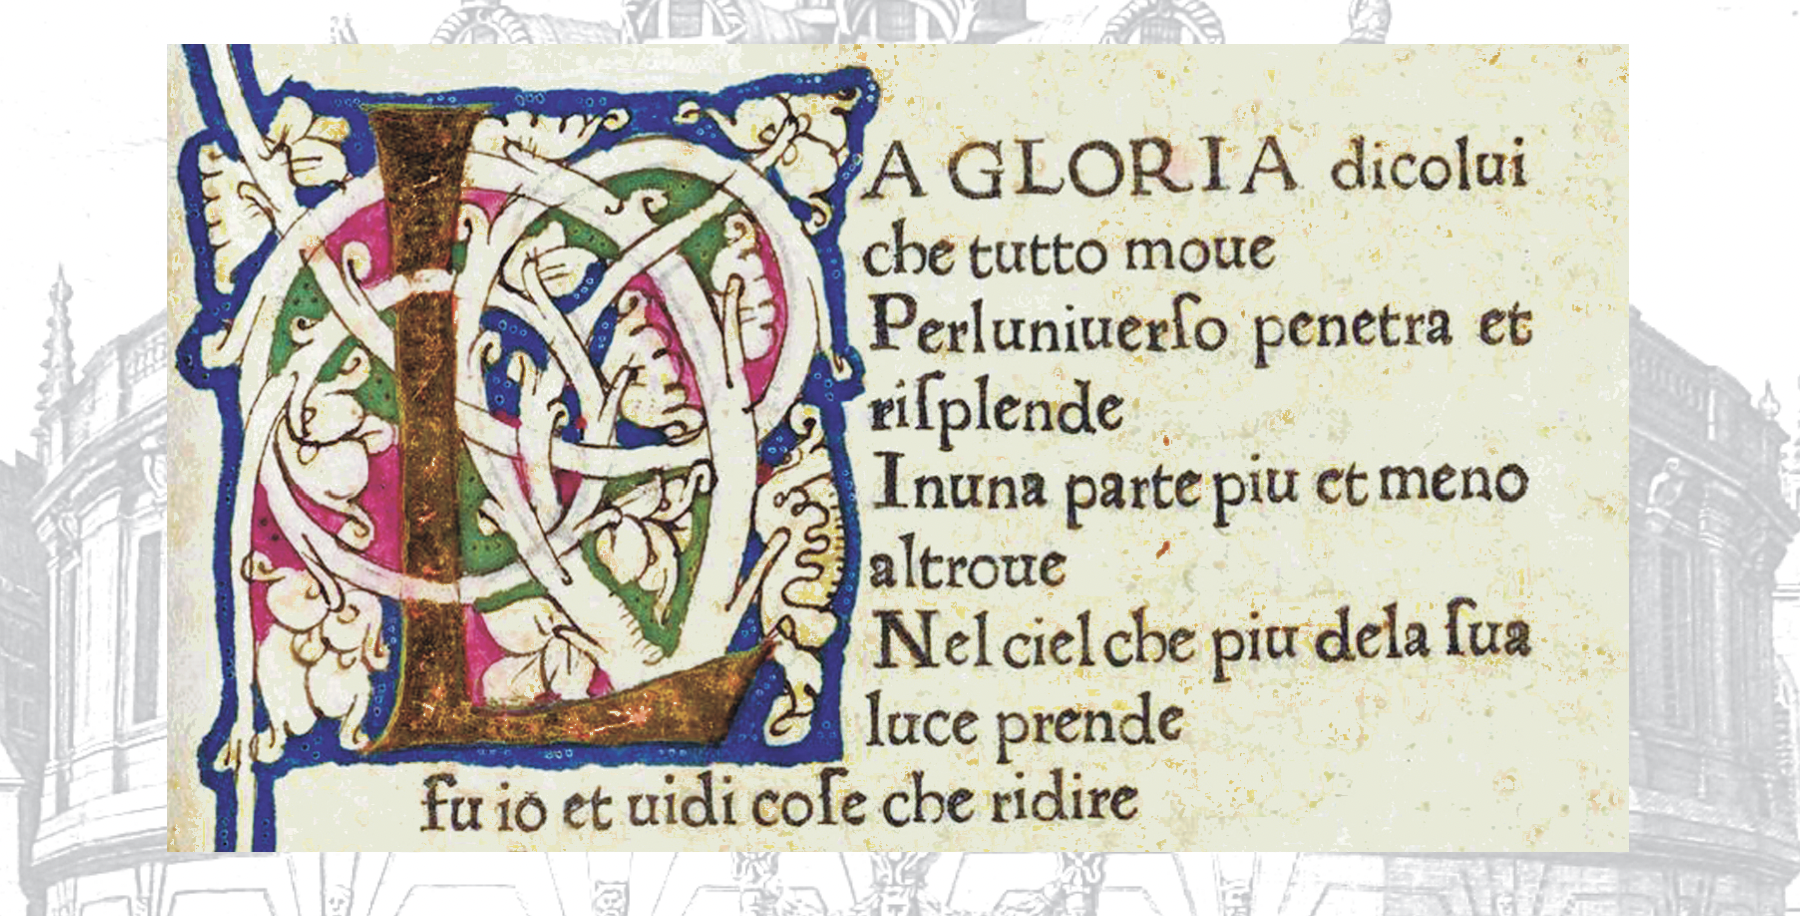 LA GLORIA dicolui
che tutto moue
Perluniuerſo penetra et
riſplende
Inuna parte piu et meno
altroue
Nel ciel che piu dela ſua
luce prende
fu io et uidi coſe che ridire